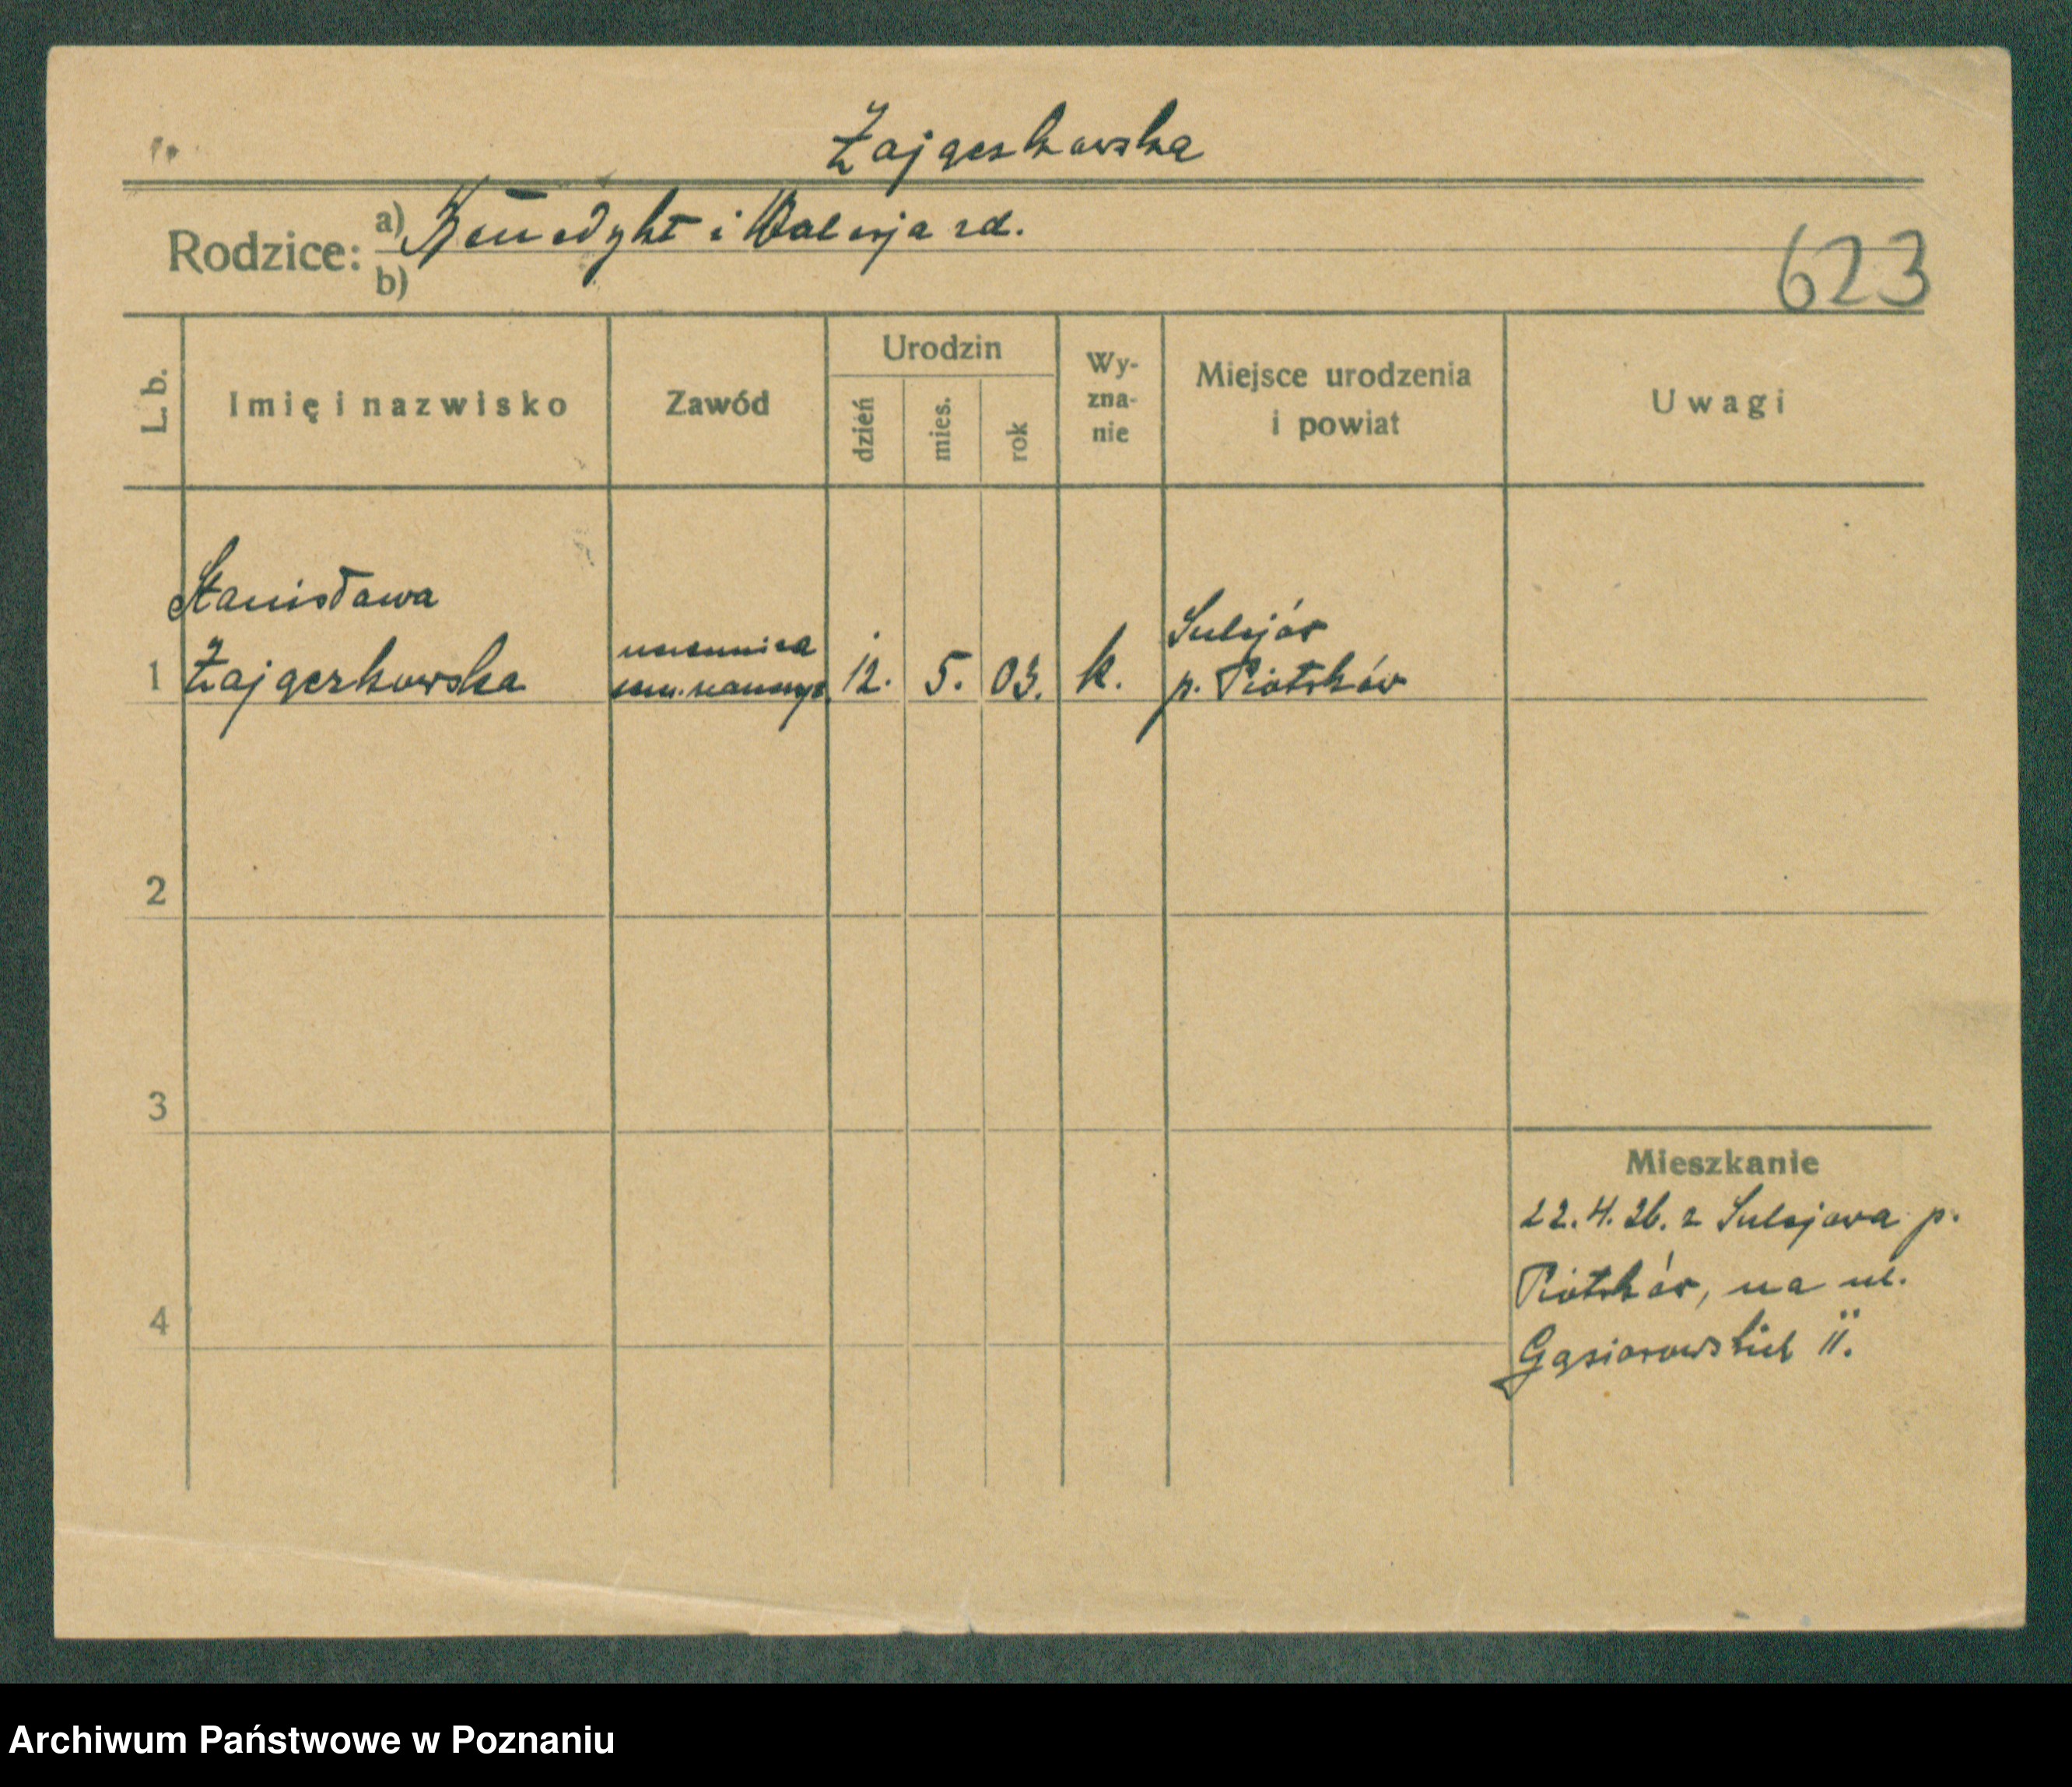 Zajgerkowska
Rodzice:
a) Benedykt i Walerja rd.
b)
623
L. b.
Imię i nazwisko
Zawód
Urodzin
dzień
mies.
rok
Wy-
zna-
nie
Miejsce urodzenia
i powiat
Uwagi
Stanisława
1 Zajgerkowska
uczennica
sem. naucz.
12. 5. 03. k.
Sulejów
p. Piotrków
2
3
4
Mieszkanie
22.4.26. z Sulejowa p.
Piotrków, na ul.
Gąsiorowskich 11.
Archiwum Państwowe w Poznaniu